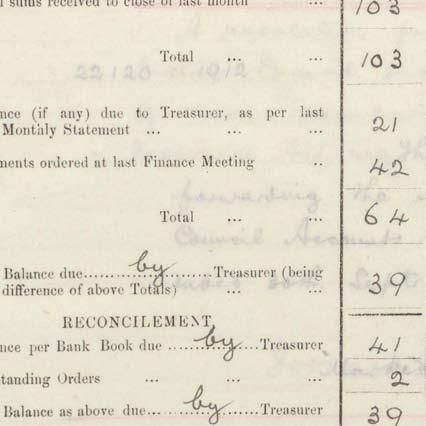 l sums received to close of last month ... 103
Total ... ... 103
22120 1912
nce (if any) due to Treasurer, as per last
Monthly Statement ... ... ... 21
ments ordered at last Finance Meeting .. 42
forwarding the
Total ... ... 64
Council Accounts
Balance due by Treasurer (being
difference of above Totals) ... ... 39
RECONCILEMENT
nce per Bank Book due by Treasurer 41
tanding Orders ... ... ... 2
Balance as above due by Treasurer 39